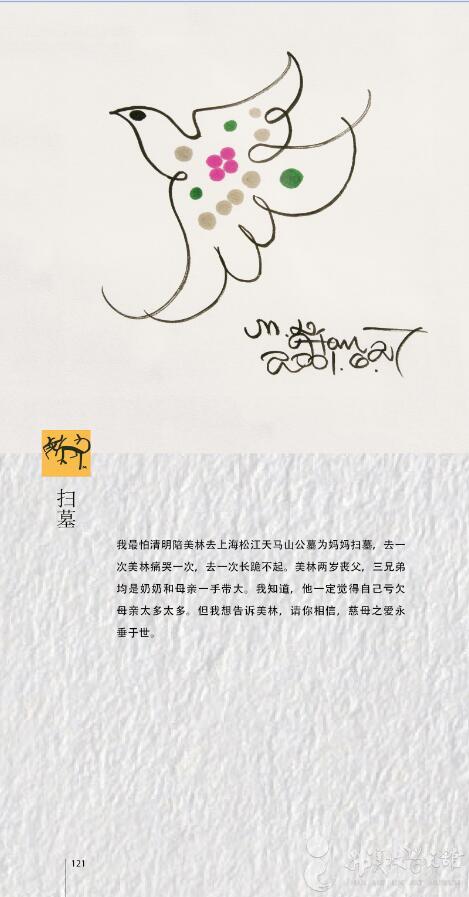 M. Han
2001.6.27
扫墓
我最怕清明陪美林去上海松江天马山公墓为妈妈扫墓，去一
次美林痛哭一次，去一次长跪不起。美林两岁丧父，三兄弟
均是奶奶和母亲一手带大。我知道，他一定觉得自己亏欠
母亲太多太多。但我想告诉美林，请你相信，慈母之爱永
垂于世。
121